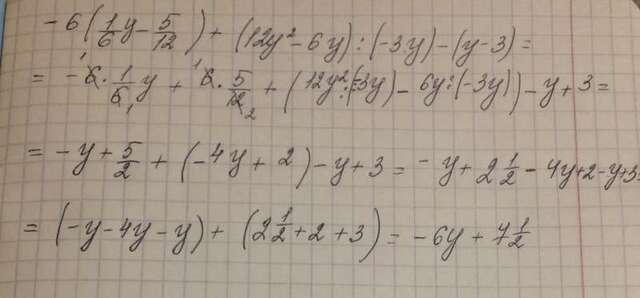 -6(1/6 y - 5/12) + (12y² - 6y) : (-3y) - (y - 3) =
= -6 · 1/6 y + 6 · 5/12 + (12y² : (-3y) - 6y : (-3y)) - y + 3 =
= -y + 5/2 + (-4y + 2) - y + 3 = -y + 2 1/2 - 4y + 2 - y + 3 =
= (-y - 4y - y) + (2 1/2 + 2 + 3) = -6y + 7 1/2